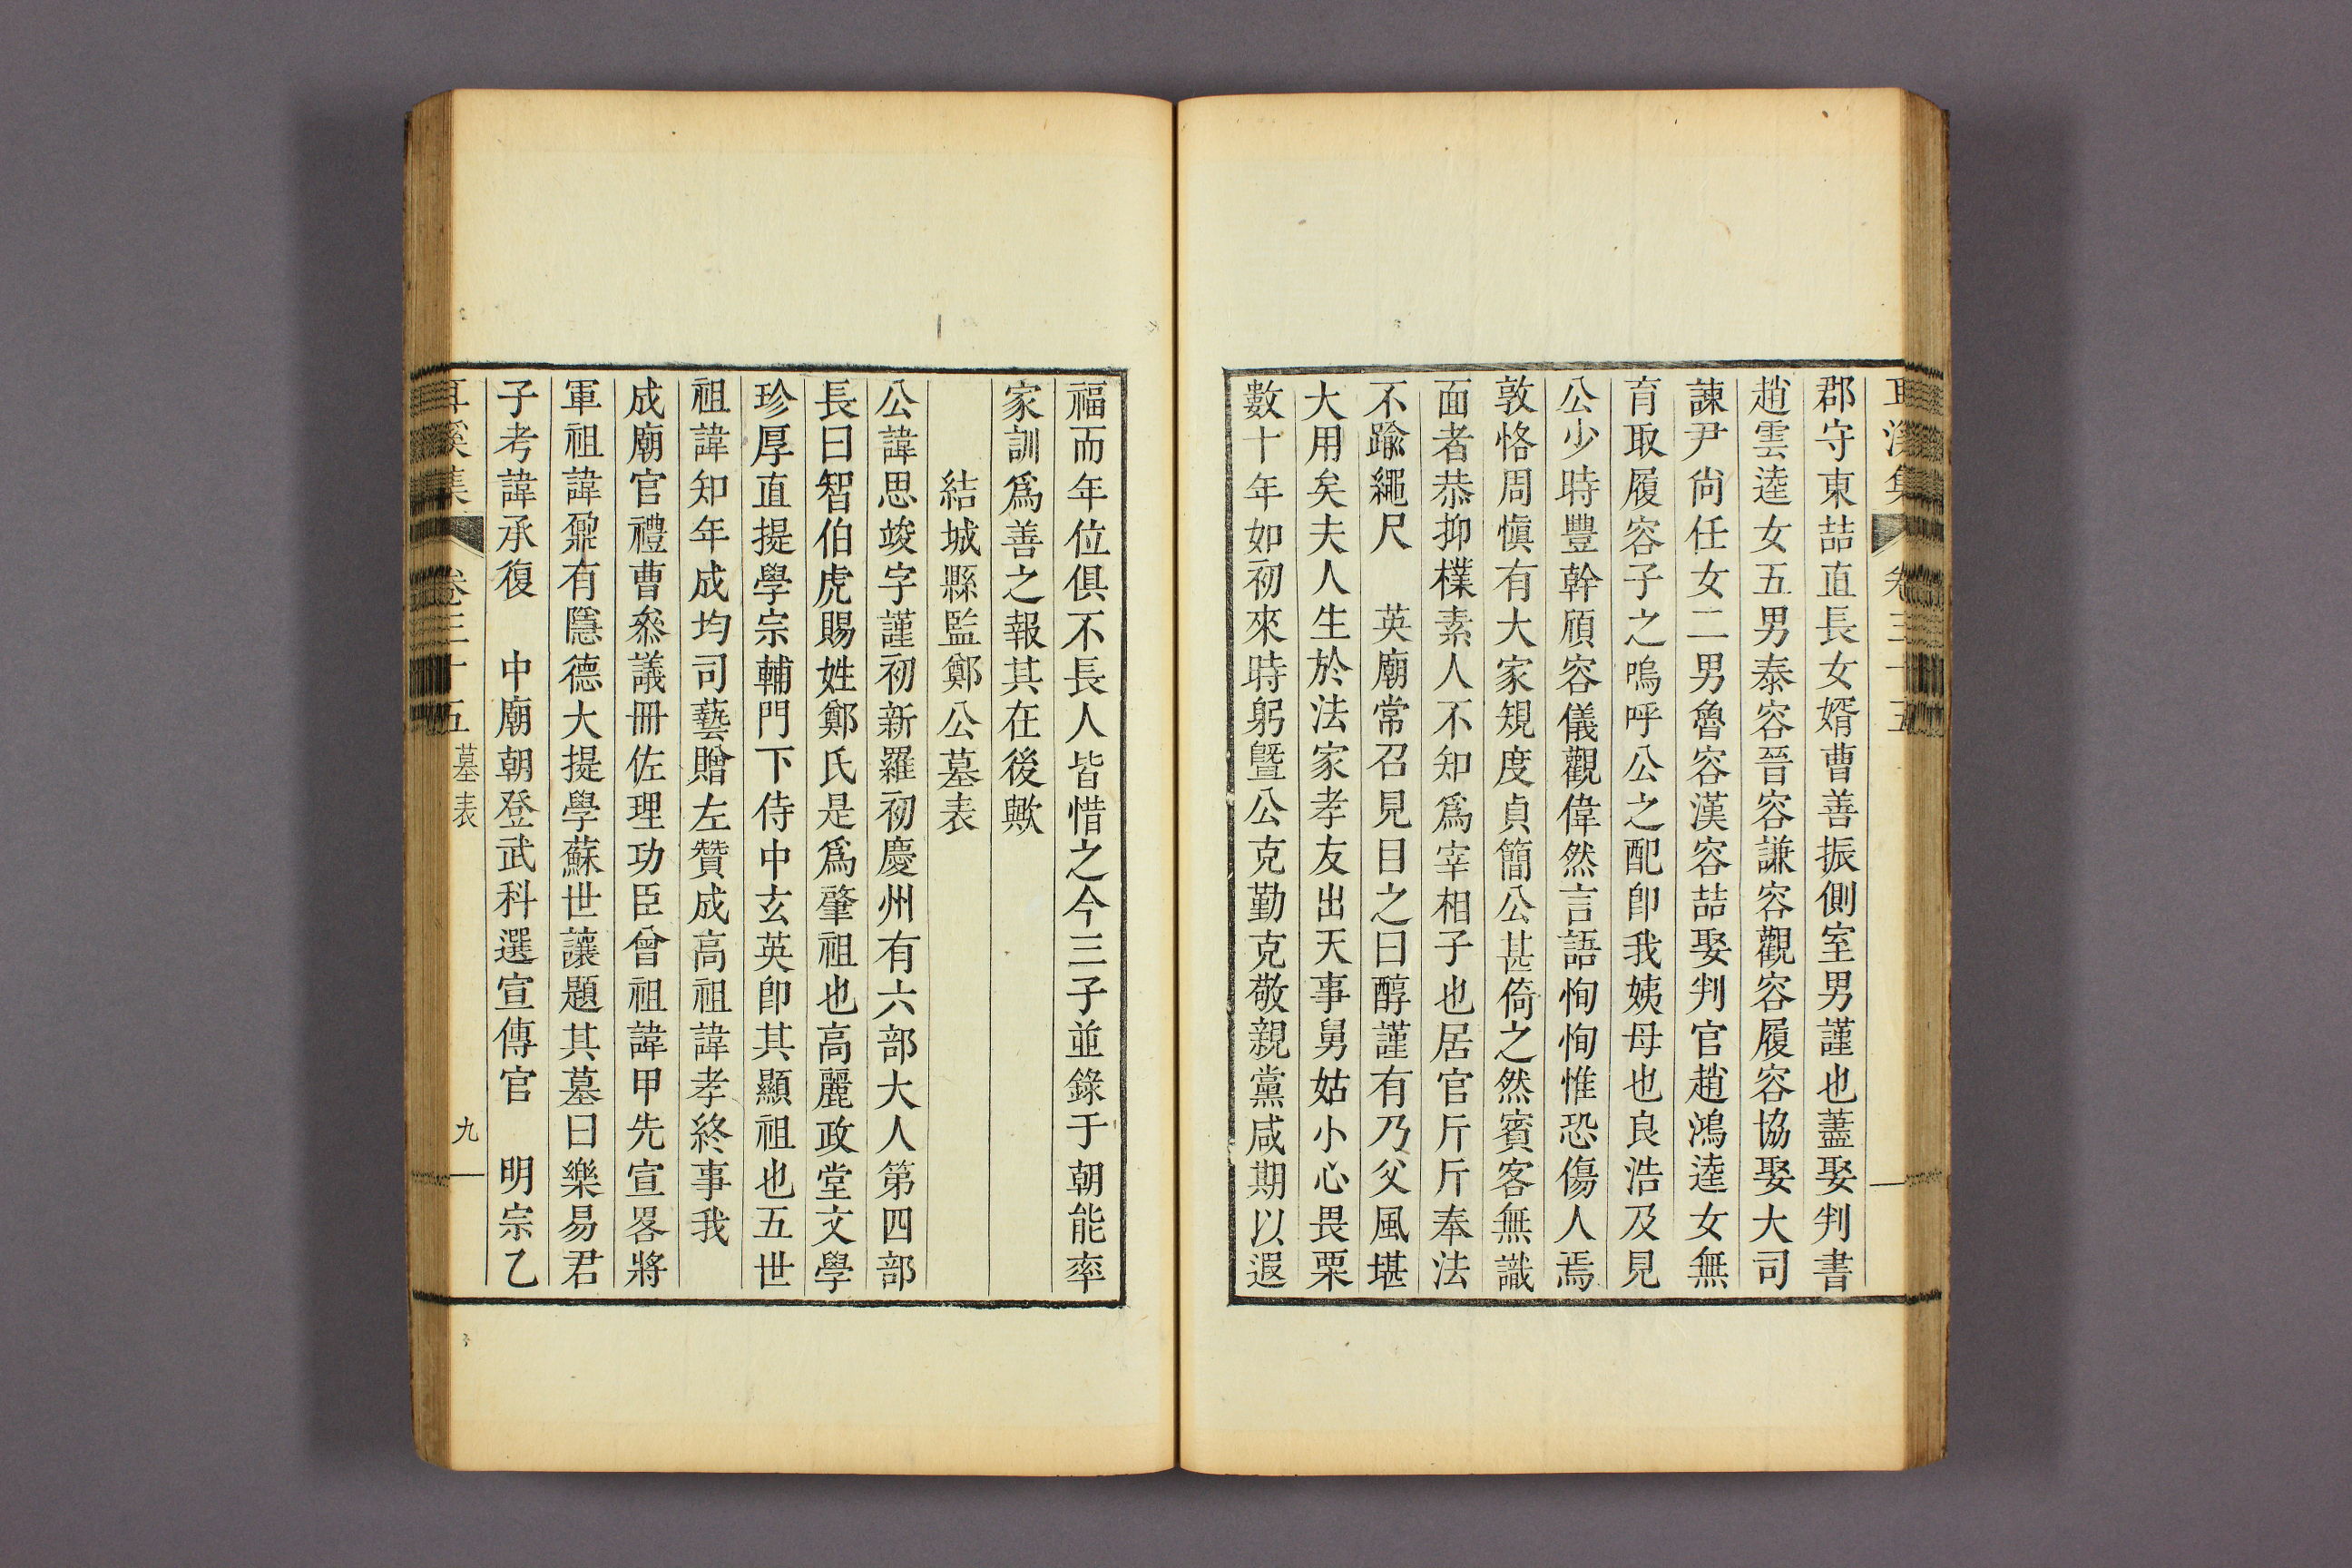 耳溪集 卷三十五
郡守東喆直長女婿曹善振側室男謹也藎娶判書
趙雲逵女五男泰容晉容謙容觀容履容協娶大司
諫尹尙任女二男魯容漢容喆娶判官趙鴻逵女無
育取履容子之嗚呼公之配卽我姨母也良浩及見
公少時豐幹頎容儀觀偉然言語恂恂惟恐傷人焉
敦恪周愼有大家䂓度貞簡公甚倚之然賓客無識
面者恭抑樸素人不知爲宰相子也居官斤斤奉法
不踰繩尺 英廟常召見目之曰醇謹有乃父風堪
大用矣夫人生於法家孝友出天事舅姑小心畏栗
數十年如初來時躬曁公克勤克敬親黨咸期以遐
福而年位俱不長人皆惜之今三子並錄于朝能率
家訓爲善之報其在後歟
結城縣監鄭公墓表
公諱思竣字謹初新羅初慶州有六部大人第四部
長曰智伯虎賜姓鄭氏是爲肇祖也高麗政堂文學
珍厚直提學宗輔門下侍中玄英卽其顯祖也五世
祖諱知年成均司藝贈左贊成高祖諱孝終事我
成廟官禮曹叅議冊佐理功臣曾祖諱甲先宣畧將
軍祖諱鼐有隱德大提學蘇世讓題其墓曰樂易君
子考諱承復 中廟朝登武科選宣傳官 明宗乙
耳溪集 卷三十五 墓表 九